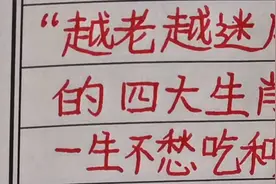 “越老越迷
的四大生肖
一生不愁吃和